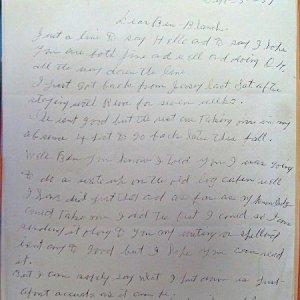 Dear Ben & Blanch.
Just a line to say Hello and to say I hope
you are both fine and well and doing O.K.
all the way down the line.
I just got back from Jersey last Sat after
staying with Rene for seven weeks.
She isn't good but the rest are taking me in my
absence & got to go back later this fall.
Well Ben you know I told you I was going
to do a write up on the old log cabin well
I have did just that and as far as my knowledge
could take me I did the best I could so I am
sending it along to you my writing or spelling
isn't any to good but I hope you can read
it.
But I can safely say what I put down is just
about accurate as it can be